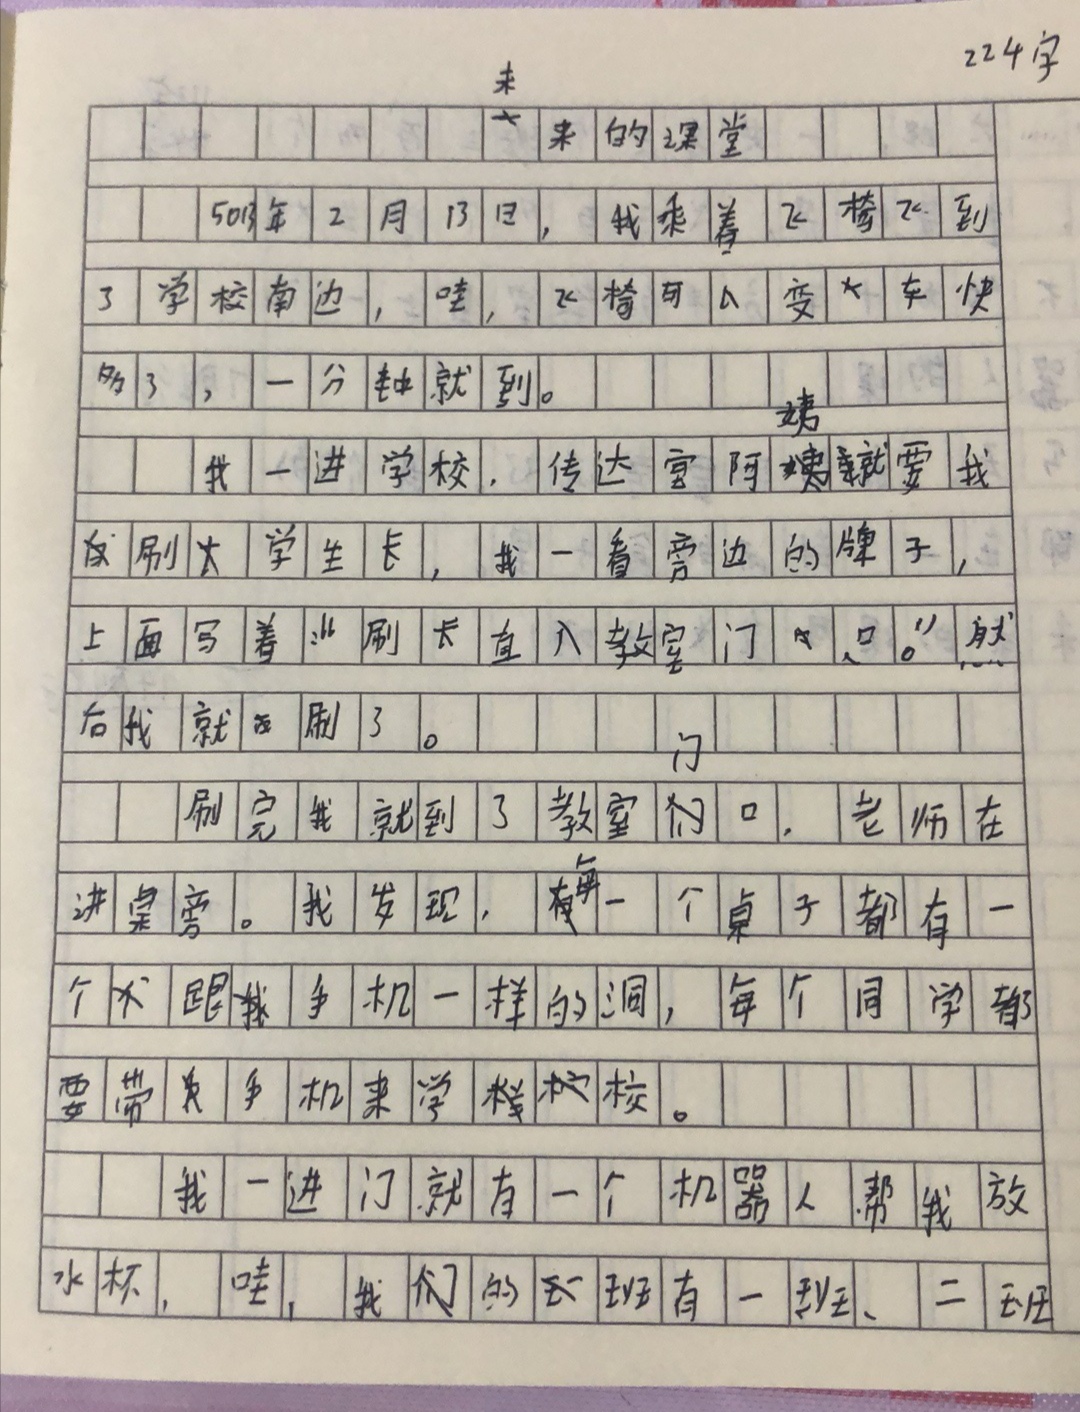 224字
未来的课堂
5013年2月13日，我乘着飞椅飞到
了学校南边，哇，飞椅可以变火车快
多了，一分钟就到。
我一进学校，传达室阿姨就要我
刷学生卡，我一看旁边的牌子，
上面写着“刷卡直入教室门口。”然
后我就刷了。
刷完我就到了教室门口，老师在
讲桌旁。我发现，每一个桌子都有一
个跟我手机一样的洞，每个同学都
要带手机来学校。
我一进门就有一个机器人帮我放
水杯，哇，我们的班有一班、二班